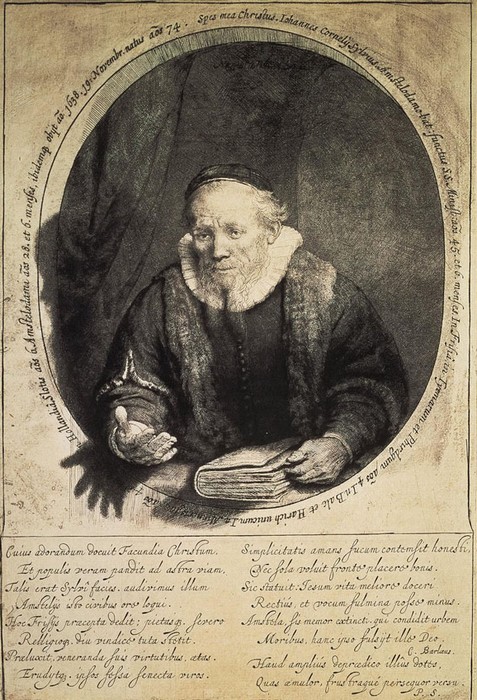 Spes mea Christus. Iohannes Cornely Sylvius, Amstelodamobat. functus S.S. Minist. aōs 45. et 6. menses In Frisia in Tjemarum et Phirdgum aōs 4. In Balc et Harich unicum In Minnertsga aōs 4.
Hollandia Slotis aōs 6. Amstelodami aōs 28. et 6. menses, ibidemq obijt aō. 1638. 19. Novembr. natus aōs 74.
Cuius adorandum docuit Facundia Christum,
Et populis veram pandit ad astra viam,
Talis erat Sylvi facies. audivimus illum
Amstelijs isto civibus ore loqui.
Hoc Frisijs præcepta dedit; pietasq. severo
Relligioq. diu vindice tuta stetit.
Præluxit, veneranda suis virtutibus, ætas.
Erudytq. ipsos fessa senecta viros.
Simplicitatis amans fucum contemsit honesti,
Nec sola voluit fronte placere bonis.
Sic statuit: Iesum vita meliore doceri
Rectius, et vocum fulmina posse minus.
Amstela, sis memor extincti, qui condidit urbem
Moribus, hanc ipso fulsijt ille Deo.
C. Barlæus.
Haud amplius deprædico illius dotes,
Quas æmulor, frustraque persequor versu.
P. S.